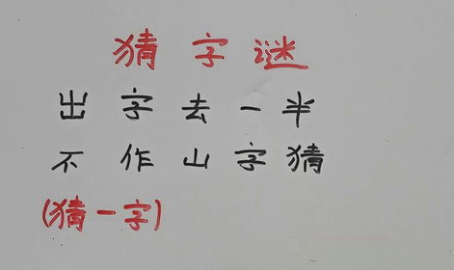 猜字谜
出字去一半
不作山字猜
(猜一字)